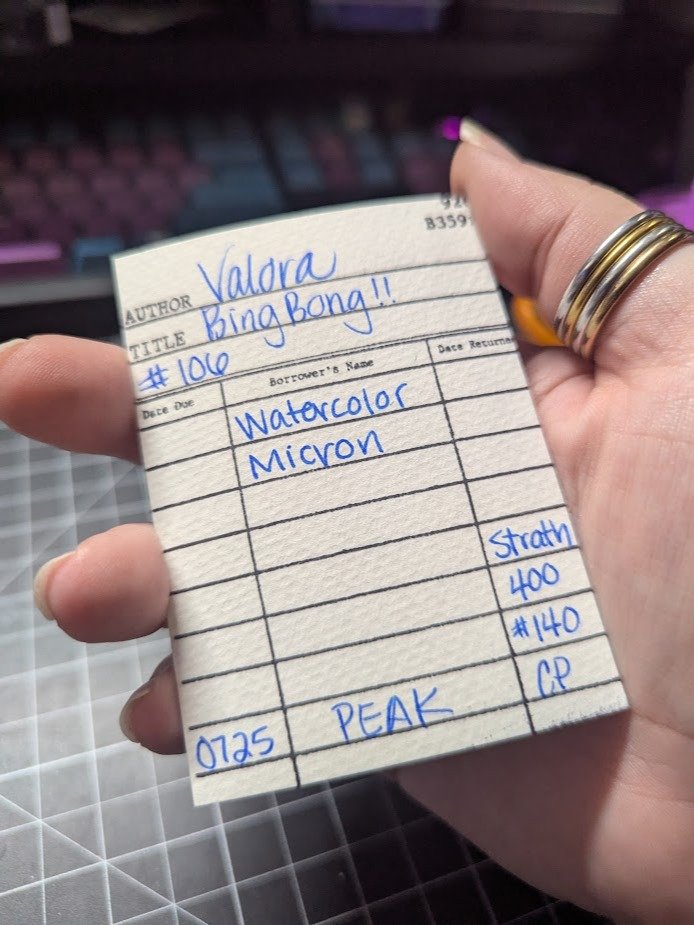 B359
AUTHOR Valora
TITLE BingBong!!
#106
Date Due Borrower's Name Date Returned
Watercolor
Micron
Strath
400
#140
CP
0725 PEAK